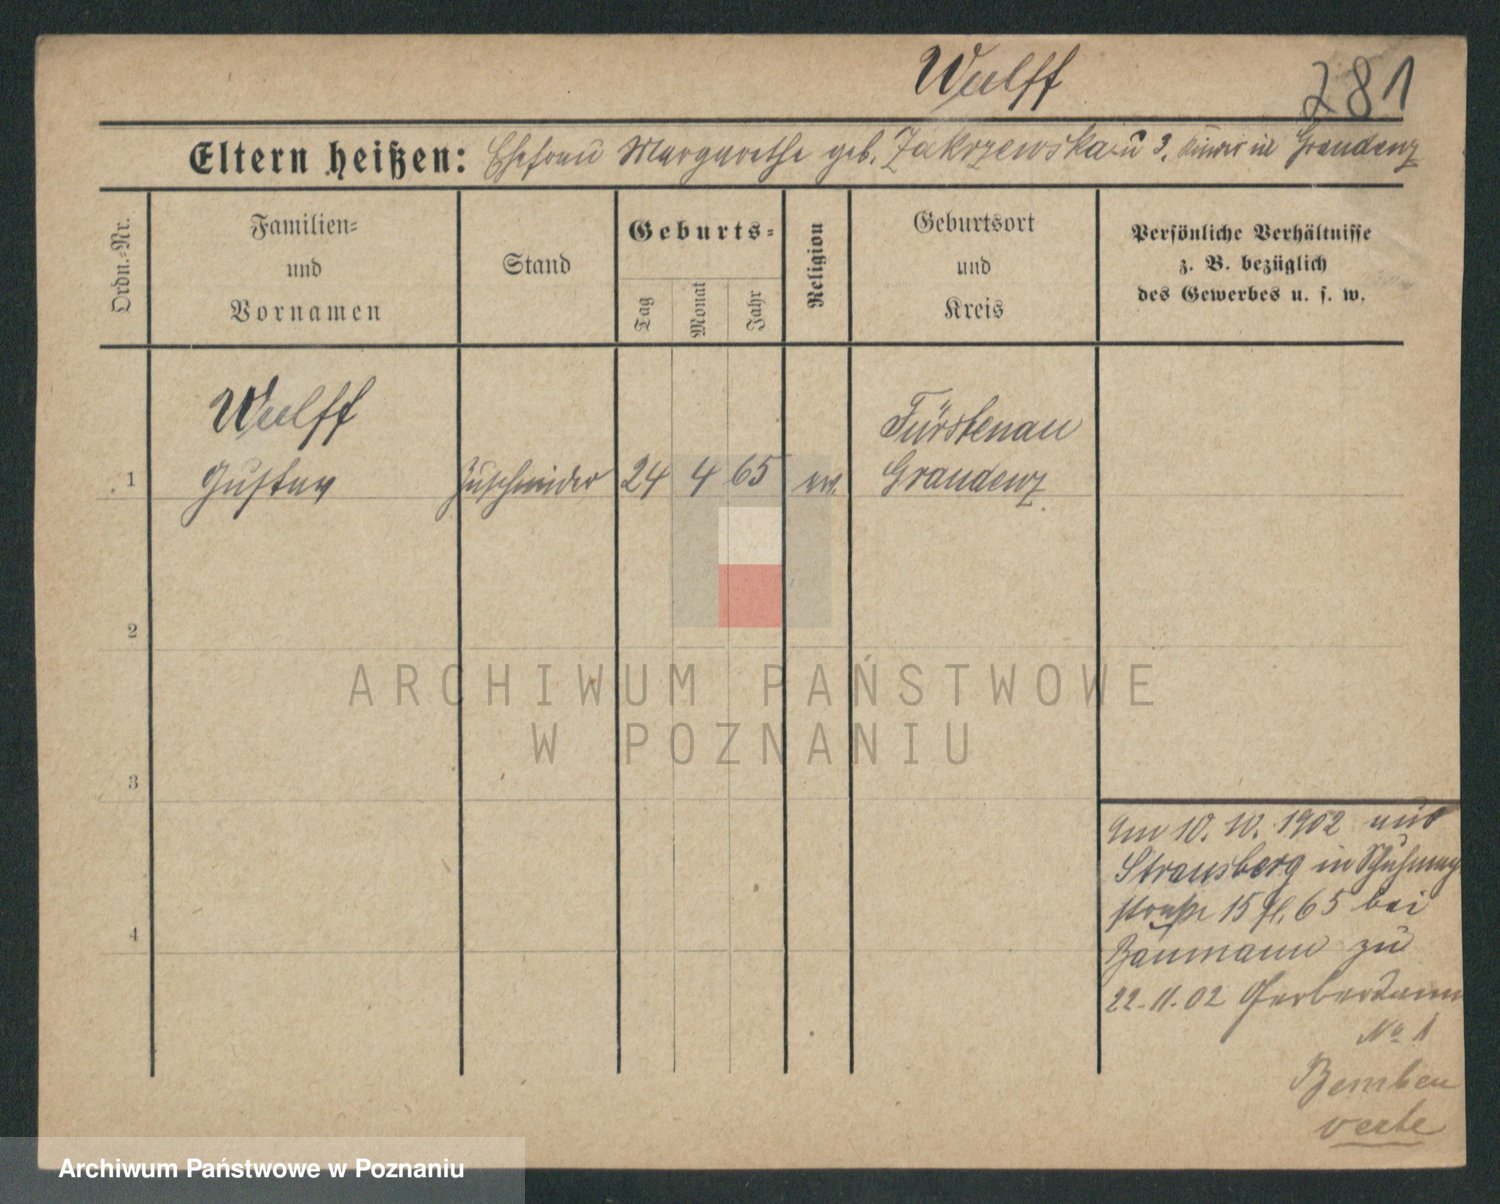 Wulff
281
Eltern heißen: Ehefrau Margarethe geb. Zakrzewska u 3. Kinder in Graudenz
Ordn.-Nr.
Familien-
und
Vornamen
Stand
Geburts-
Tag
Monat
Jahr
Religion
Geburtsort
und
Kreis
Persönliche Verhältnisse
z. B. bezüglich
des Gewerbes u. s. w.
Wulff
Fürstenau
1 Gustav Zuschneider 24 4 65 ev. Graudenz
2
ARCHIWUM PAŃSTWOWE
W POZNANIU
3
Am 10. 10. 1902 aus
Strausberg in
straße 15 65 bei
Baumann zu
4
22.11.02 Gerberdamm
No 1
Bemben
verte
Archiwum Państwowe w Poznaniu